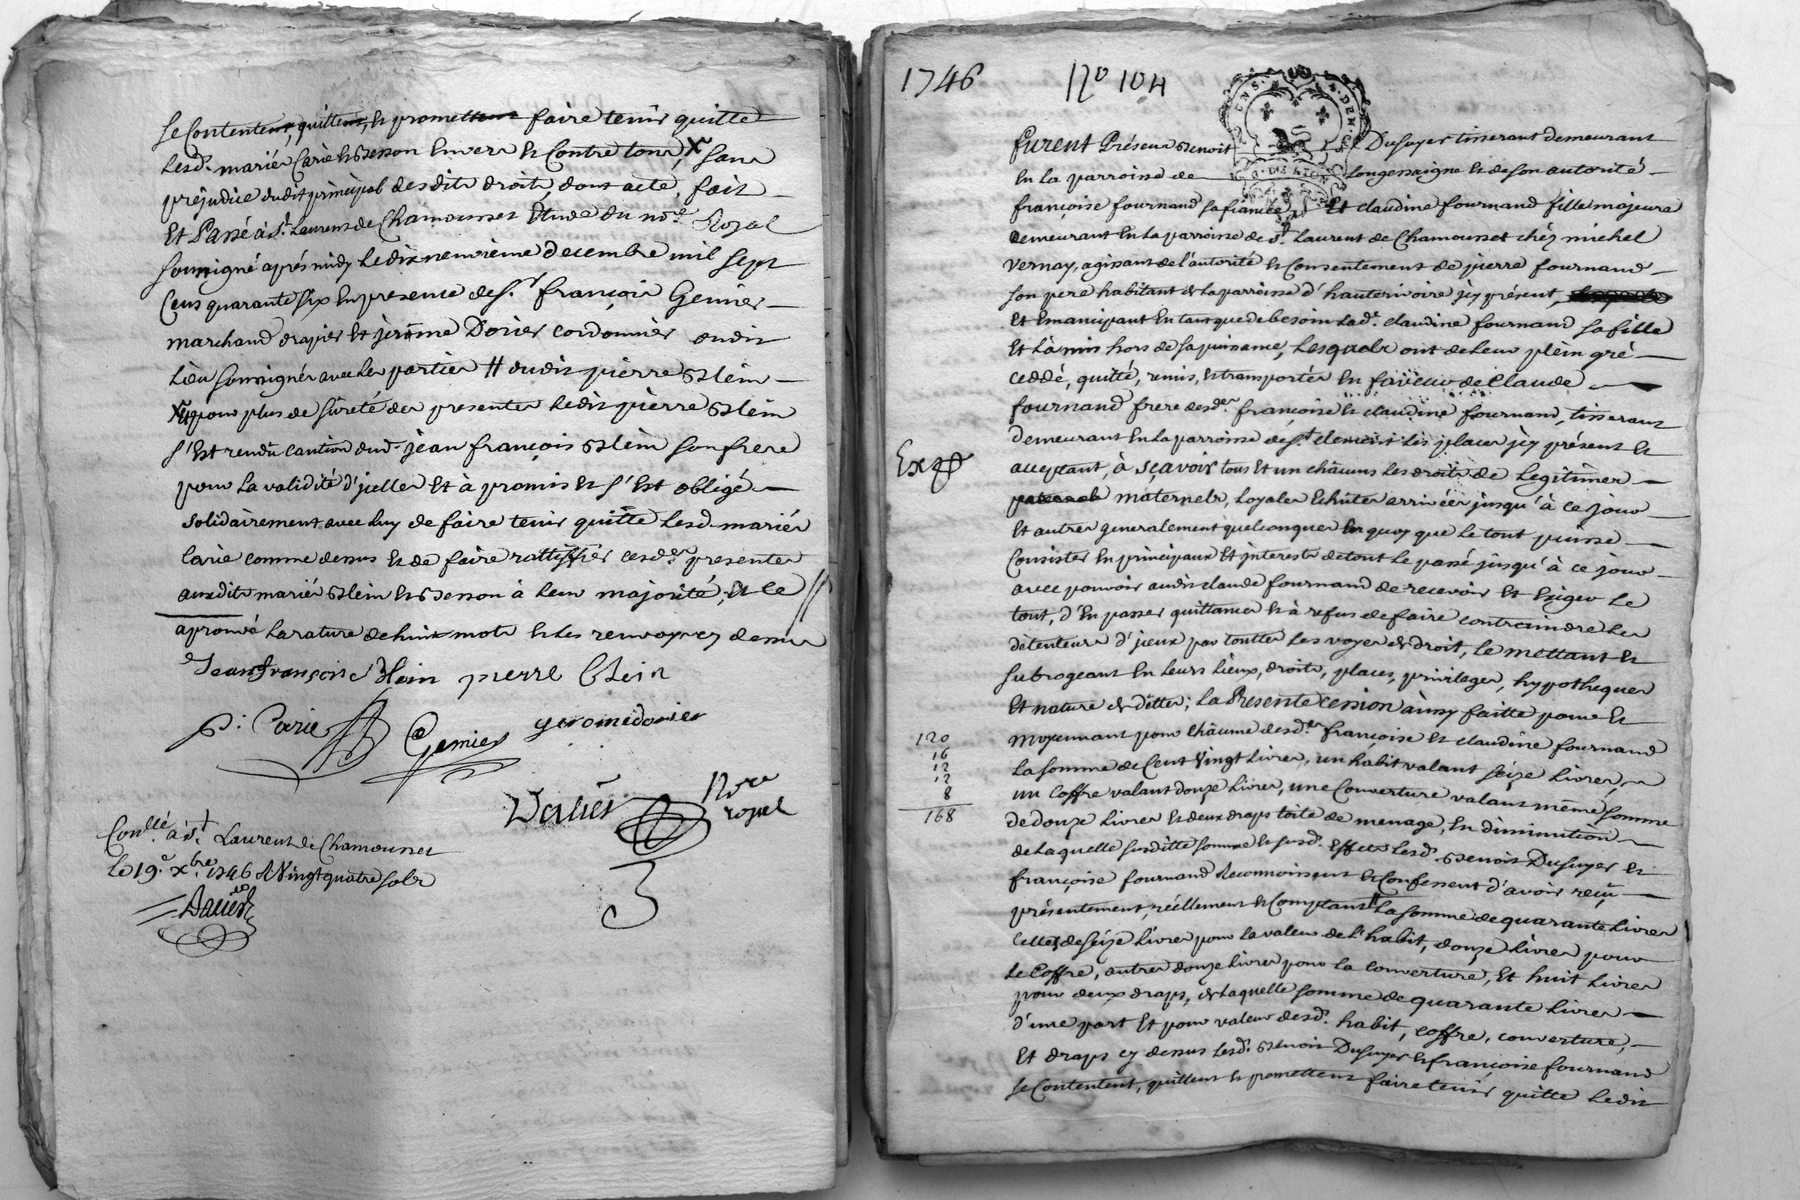 se Contentent, quittent, et promettent faire tenir quitte
lesd. mariés Carie et Besson envers et Contre tous, X sans
préjudice dudit principal desdits droits, dont acte, fait
Et Passé à St. Laurent de Chamousset Etude du nore. Royal
soussigné après midy le dix neuvieme decembre mil sept
Cens quarante six en presence de sr. françois Genier
marchand drapier et jerôme Dorier cordonnier dudit
lieu soussignés avec les parties // dudit pierre
X et pour plus de sûreté des presentes ledit pierre
s'Est rendu caution dud. jean françois son frere
pour la validité d'jcelles Et à promis et s'Est obligé
solidairement avec luy de faire tenir quitte lesd. mariés
Carie comme dessus et de faire rattiffier cesd. presentes
auxdits mariés et Besson à leur majorité, Et ce //
aprouvé la rature de huit mots et les renvoys cy dessus
Jean françois pierre
P. Carie Genier geromedorier
Nore royal
Conllé. à St. Laurent de Chamousset
Le 19e. Xbre. 1746 R Vingt quatre sols
1746 No 104
furent Présens Benoit Dusuyer tisserant demeurant
En la parroisse de Longessaigne et de son autorité
françoise fournand sa fiancée, Et claudine fournand fille majeure
demeurant En la parroisse de St. Laurent de Chamousset chés michel
Vernay, agissant de l'autorité et Consentement de pierre fournand
son pere habitant de la parroisse d'hauterivoire jcy présent,
Et Emancipant En tant que de besoin lad. claudine fournand sa fille
Et l'à mis hors de sa puissance, Lesquels ont de leur plein gré
ceddé, quitté, remis, et transportés En faveur de Claude
fournand frere desdes. françoise et claudine fournand, tisserant
demeurant En la parroisse de St. clement les places jcy présent Et
Exp
acceptant, à sçavoir tous Et un châcuns les droits de Legitimes
maternels, Loyales Echutes arrivées jusqu'à ce jour
Et autres generalement quelconques En quoy que le tout puisse
Consister En principaux Et jnterests de tout le passé jusqu'à ce jour
avec pouvoir audit claude fournand de recevoir Et Exiger Le
tout, d'En passer quittances et à refus de faire contraindre Les
détenteurs d'jceux par touttes Les voyes de droit, Le mettant et
subrogeant En leurs Lieux, droits, places, privileges, hypotheques
Et nature de dettes; La Présente cession ainsy faitte pour Et
120
moyennant pour châcune desdes. françoise Et claudine fournand
16
la somme de Cent Vingt Livres, un habit valant seize Livres,
12
un Coffre valant douze Livres, une Couverture valant même somme
12
8
de douze Livres et deux draps toile de menage, En diminution
168
de Laquelle susditte somme et susd. Effets Lesd. Benoit Dusuyer Et
françoise fournand Reconnoissent et Confessent d'avoir reçû
présentement, réellement et Comptant La somme de quarante Livres
celle de seize Livres pour la valeur de l'habit, douze Livres pour
Le Coffre, autres douze Livres pour la Couverture, Et huit Livres
pour deux draps, de Laquelle somme de quarante Livres
d'une part Et pour valeur desd. habit, coffre, couverture,
Et draps cy dessus Lesd. Benoit Dusuyer et françoise fournand
se Contentent, quittent et promettent faire tenir quitte Ledit